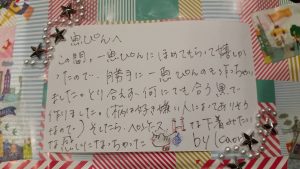 一恵ぴんへ
この間、一恵ぴんにほめてもらって嬉し
かったので、勝手に一恵ぴんのも作っちゃい
ましたとりえあず、何にでも合う黒で
作りました。(柄は好き嫌い人によってありそう
なので)そしたら、
な下着みたい
な感じになっちゃった
by